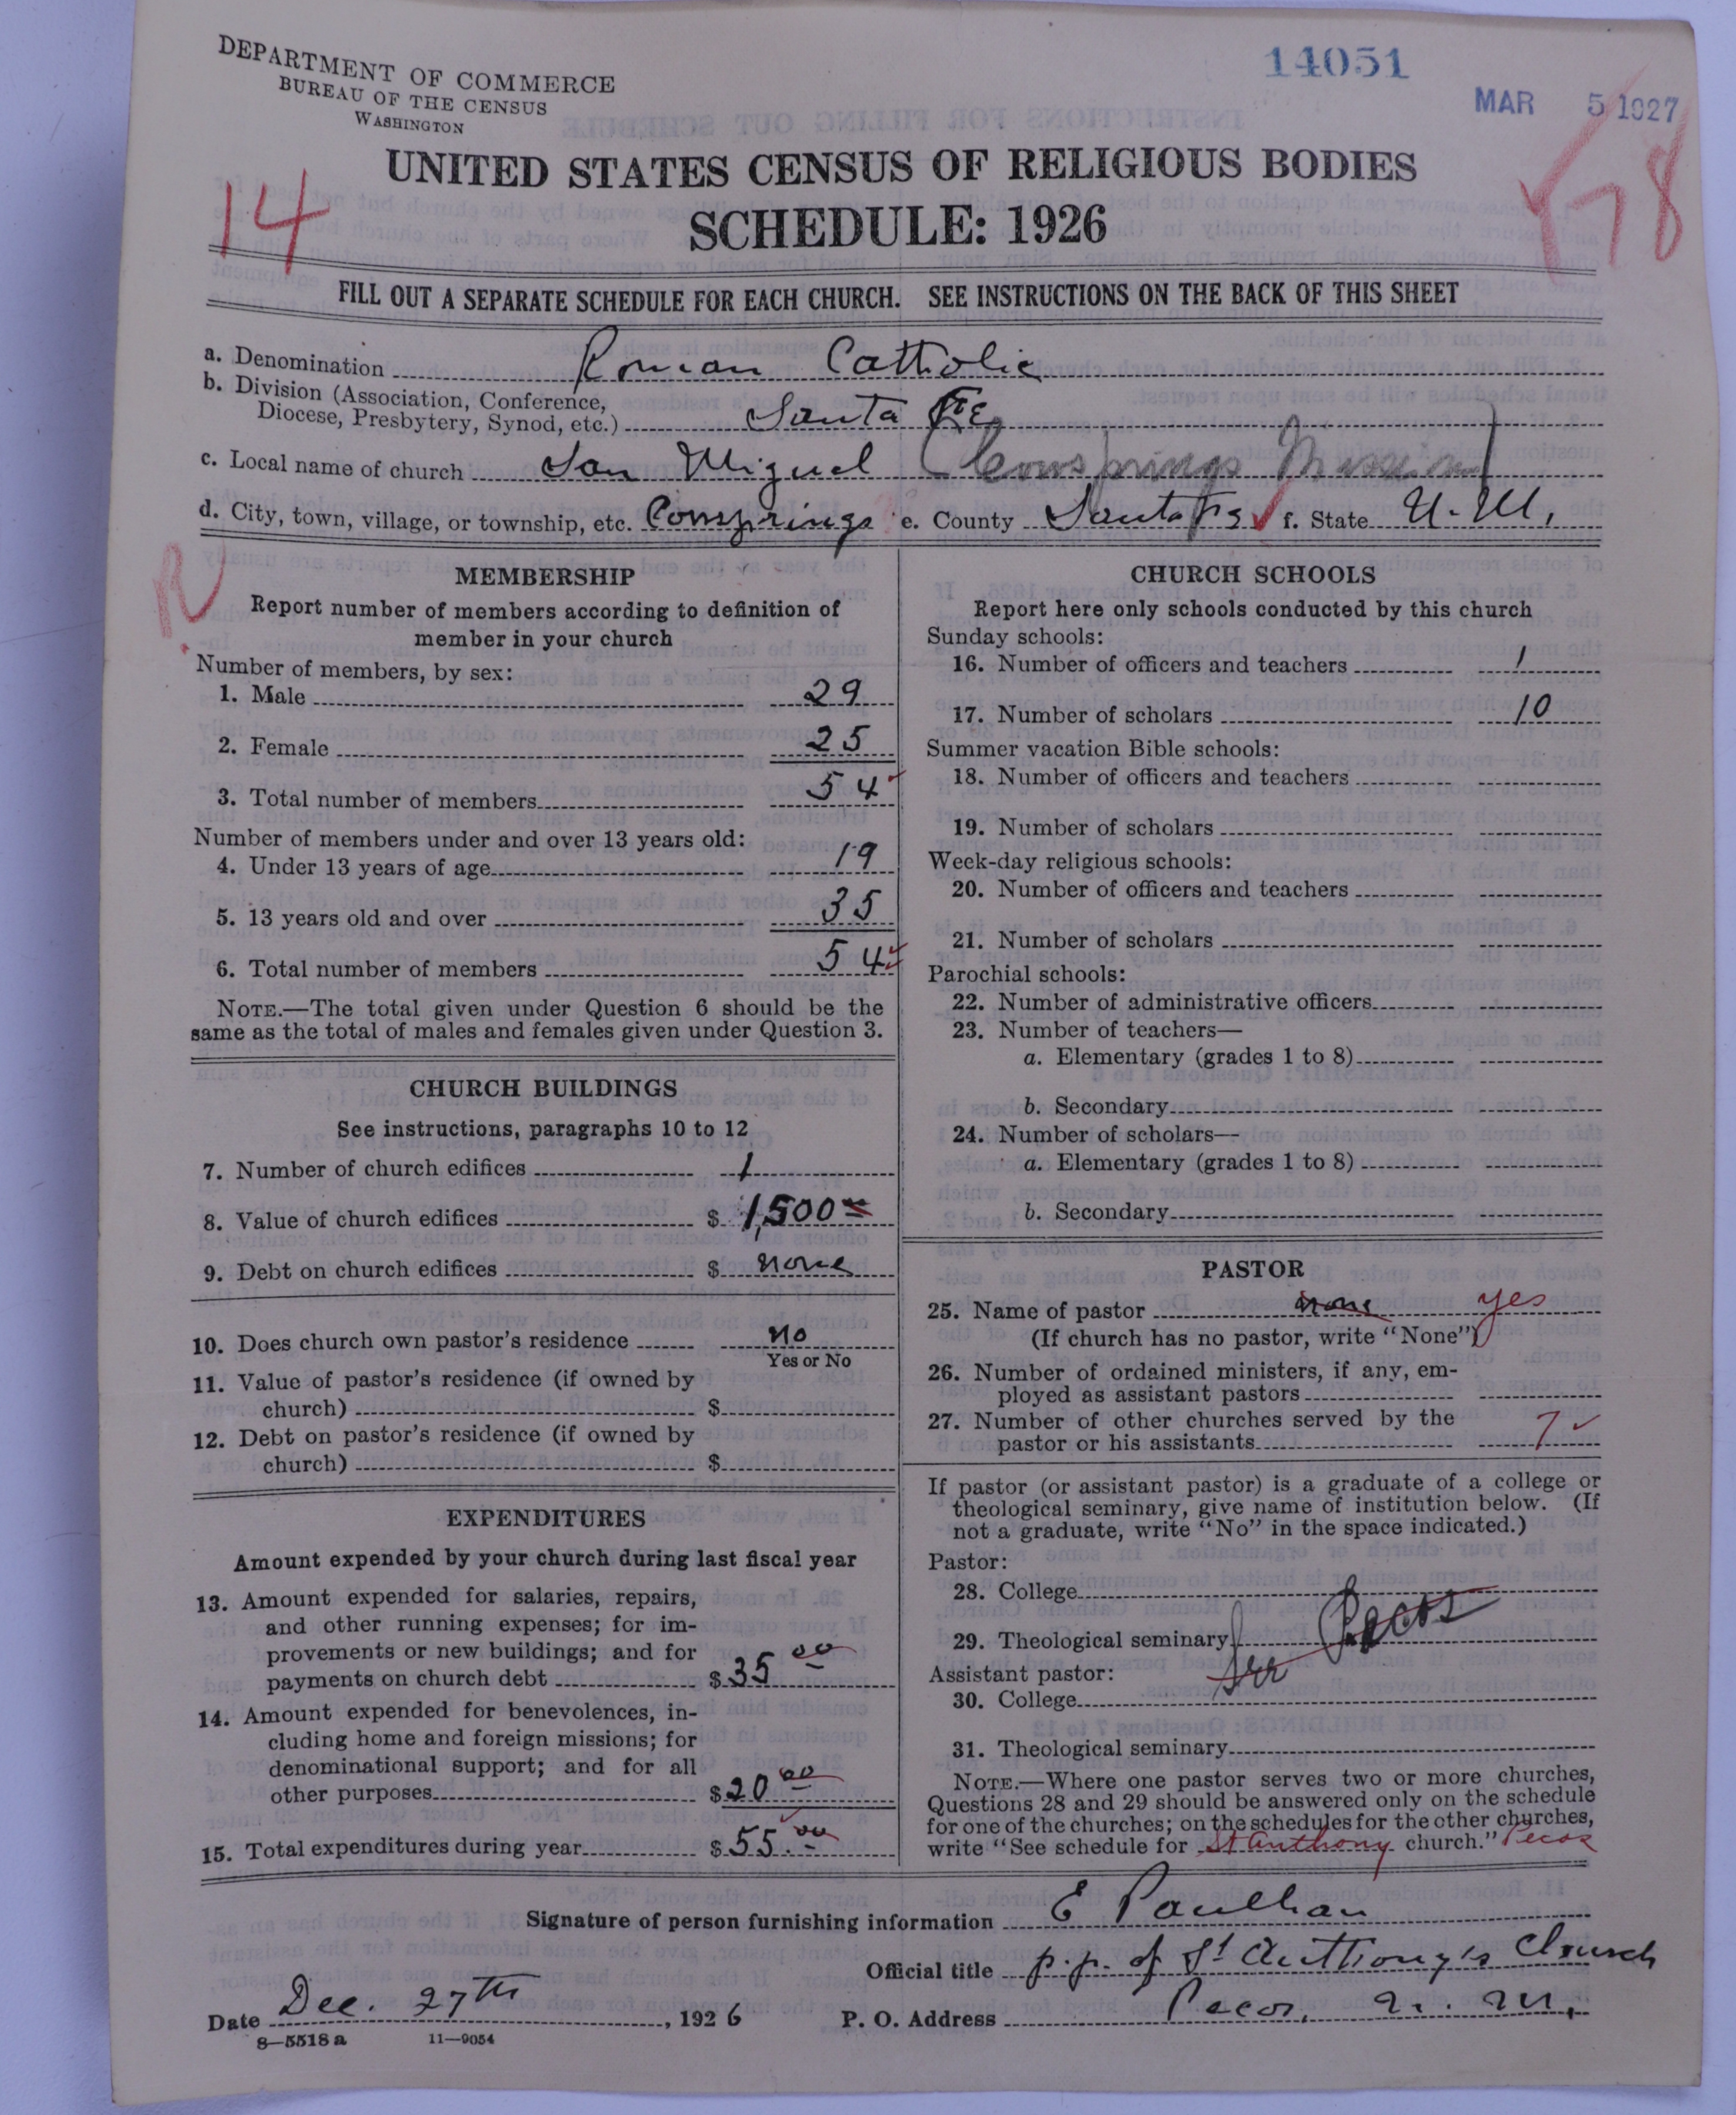 DEPARTMENT OF COMMERCE
BUREAU OF THE CENSUS
WASHINGTON
14051
MAR 5 1927
14
78
UNITED STATES CENSUS OF RELIGIOUS BODIES
SCHEDULE: 1926
FILL OUT A SEPARATE SCHEDULE FOR EACH CHURCH. SEE INSTRUCTIONS ON THE BACK OF THIS SHEET
a. Denomination Roman Catholic
b. Division (Association, Conference,
Diocese, Presbytery, Synod, etc.) Santa Fe
c. Local name of church San Miguel (Cowsprings Mission)
d. City, town, village, or township, etc. Cowsprings e. County Santa Fe f. State N. M.
R
MEMBERSHIP
Report number of members according to definition of
member in your church
Number of members, by sex:
1. Male 29
2. Female 25
3. Total number of members 54
Number of members under and over 13 years old:
4. Under 13 years of age 19
5. 13 years old and over 35
6. Total number of members 54
NOTE.—The total given under Question 6 should be the
same as the total of males and females given under Question 3.
CHURCH BUILDINGS
See instructions, paragraphs 10 to 12
7. Number of church edifices 1
8. Value of church edifices $ 1,500
9. Debt on church edifices $ none
10. Does church own pastor's residence no
Yes or No
11. Value of pastor's residence (if owned by
church) $
12. Debt on pastor's residence (if owned by
church) $
EXPENDITURES
Amount expended by your church during last fiscal year
13. Amount expended for salaries, repairs,
and other running expenses; for im-
provements or new buildings; and for
payments on church debt $ 35 00
14. Amount expended for benevolences, in-
cluding home and foreign missions; for
denominational support; and for all
other purposes $ 20 00
15. Total expenditures during year $ 55.00
CHURCH SCHOOLS
Report here only schools conducted by this church
Sunday schools:
16. Number of officers and teachers 1
17. Number of scholars 10
Summer vacation Bible schools:
18. Number of officers and teachers
19. Number of scholars
Week-day religious schools:
20. Number of officers and teachers
21. Number of scholars
Parochial schools:
22. Number of administrative officers
23. Number of teachers—
a. Elementary (grades 1 to 8)
b. Secondary
24. Number of scholars—
a. Elementary (grades 1 to 8)
b. Secondary
PASTOR
25. Name of pastor none yes
(If church has no pastor, write "None")
26. Number of ordained ministers, if any, em-
ployed as assistant pastors
27. Number of other churches served by the
pastor or his assistants 7
If pastor (or assistant pastor) is a graduate of a college or
theological seminary, give name of institution below. (If
not a graduate, write "No" in the space indicated.)
Pastor:
28. College
29. Theological seminary See Pecos
Assistant pastor:
30. College
31. Theological seminary
NOTE.—Where one pastor serves two or more churches,
Questions 28 and 29 should be answered only on the schedule
for one of the churches; on the schedules for the other churches,
write "See schedule for St Anthony church." Pecos
Signature of person furnishing information E Paulhan
Official title p.p. of St Anthony's Church
Date Dec. 27th, 1926 P. O. Address Pecos, N. M.
8—5518 a 11—9054